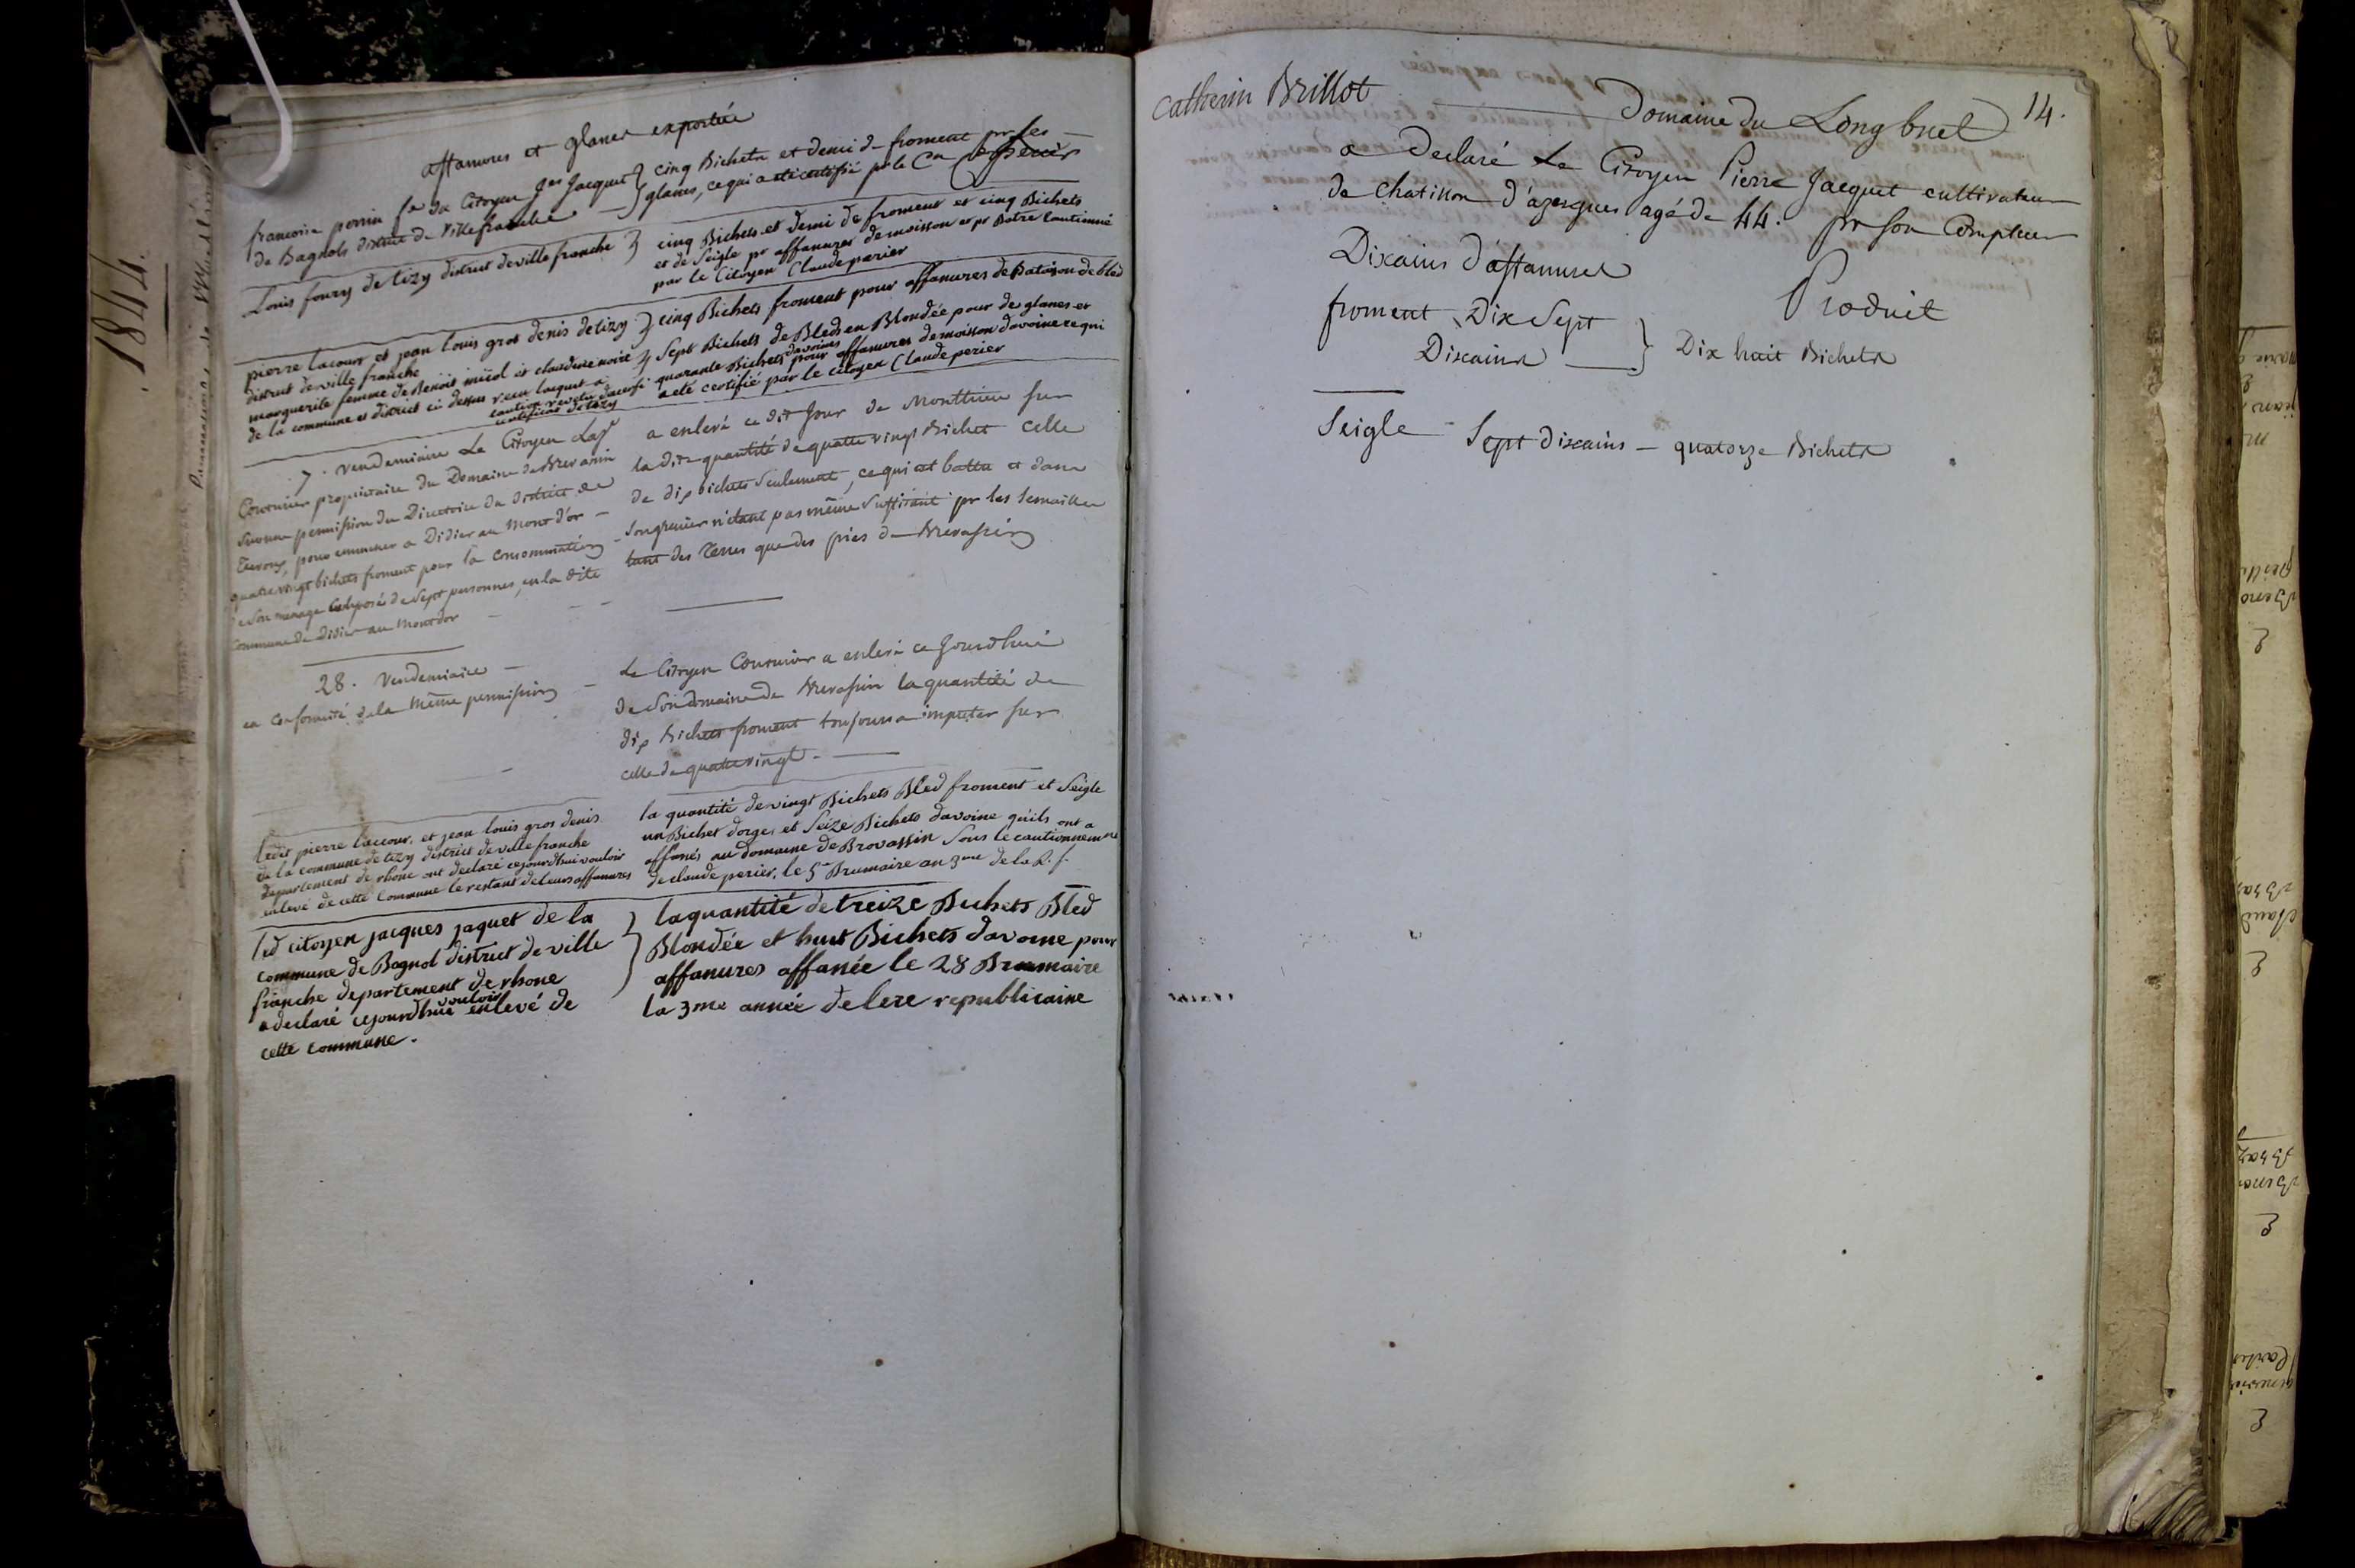 affanures et glanes exportée
francoise perrin fe du Citoyen Jes Jacquet
de Bagnols district de Villefranche
cinq Bichets et demi de froment pr ses
glanes, ce qui a été certifié pr le Cen
Louis foury de tizy district de ville franche
cinq Bichets et demi de froment et cinq Bichets
et de Seigle pr affanures de moisson et pr Batre Cautionné
par le Citoyen Claude parier
pierre lacour et jean louis gros denis de tizy
district de ville franche
cinq Bichets froment pour affanures de Bataison de bled
marguerite femme de Benoit et claudine noiré
de la commune et district ci dessus
certificat de tizy
Sept Bichets de Bleds en Blondée pour des glanes et
quarante Bichets davoines pour affanures de moisson davoine ce qui
a eté certifié par le citoyen Claude perier
7. Vendemiaire Le Citoyen
Couturier proprietaire du Domaine de Brevassin
permission du Directoire du district de
pour emmener a Didier au Mont d'or -
quatre vingt bichets froment pour la Consommation
de Son menage Composée de Sept personnes, en la dite
Commune de Didier au Montdor
a enlevé ce dit Jour de sur
la dite quantité de quatre vingt Bichet celle
de dix bichets Seulement, ce qui est battu et dans
son grenier n'étant pas même Suffisant pr les Semailles
tant des Terres que des prés de Brevassin
28. Vendemiaire -
en Conformité de la Même permission -
Le Citoyen Couturier a enlevé ce Jourdhui
de Son domaine de Brevassin la quantité de
dix Bichets froment toujours a imputer sur
celle de quatre vingt -
ledit pierre laccour, et jean louis gros denis
de la commune de tizy district de ville franche
departement de rhone ont declaré cejourdhui vouloir
enlevé de cette Commune le restant de leurs affanures
la quantité de vingt Bichets Bled froment et Seigle
un Bichet dorges et Seize Bichets davoine qu'ils ont a
affanés au domaine de Brovassin Sous le cautionnement
de claude perier, le 5e Brumaire an 3eme de la R. f.
led citoyen jacques jaquet de la
commune de Bagnol district de ville
franche departement de rhone
a declaré cejourdhui vouloir enlevé de
cette commune.
la quantité de treize Bichets Bled
Blondée et huit Bichets davoine pour
affanures affanée le 28 Brumaire
la 3me année de lere republicaine
1844.
Catherin Brillot
Domaine du Long buet
14.
a Declaré Le Citoyen Pierre Jacquet cultivateur
de Chatillon d'azergues agé de 44. pr Son Compteur
Dixains d'affanures
Produit
froment Dix Sept
Dixains
Dix huit Bichets
Seigle - Sept dixains - quatorze Bichets